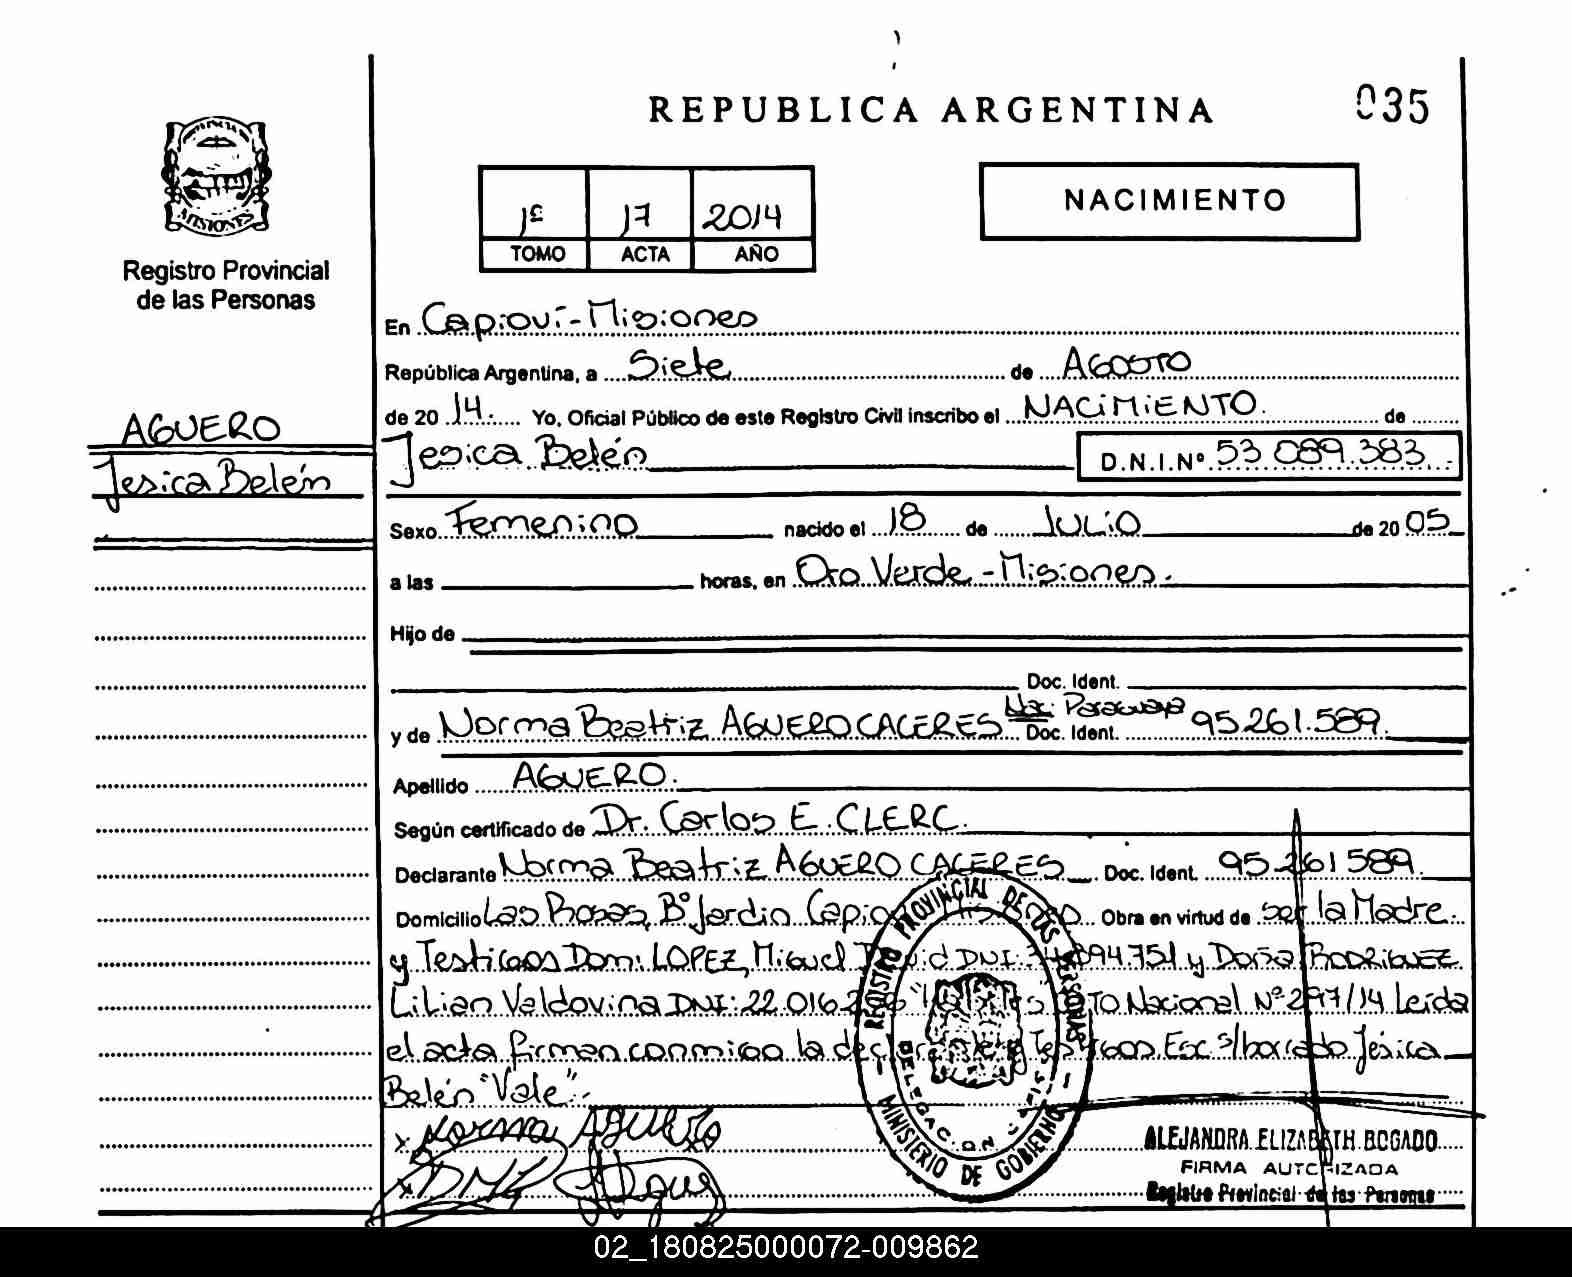 REPUBLICA ARGENTINA
035
PROVINCIA DE
MISIONES
Registro Provincial
de las Personas
1º 17 2014
TOMO ACTA AÑO
NACIMIENTO
AGUERO
Jesica Belén
En Capioví-Misiones
República Argentina, a Siete de AGOSTO
de 2014. Yo, Oficial Público de este Registro Civil inscribo el NACIMIENTO. de
Jesica Belén D.N.I.Nº 53 089.383
Sexo Femenino nacido el 18 de JULIO de 2005
a las horas, en Oro Verde-Misiones.
Hijo de
Doc. Ident.
y de Norma Beatriz AGUERO CACERES Nac: Paraguaya Doc. Ident. 95 261.589.
Apellido AGUERO.
Según certificado de Dr. Carlos E. CLERC.
Declarante Norma Beatriz AGUERO CACERES Doc. Ident. 95.261 589
Domicilio Las Rosas, Bº Jardin Obra en virtud de ser la Madre
y Testigos Don: LOPEZ, Miguel DNI: 894.751 y Doña RODRIGUEZ
Lilian Valdovina DNI: 22.016 Nacional Nº 297/14 Leida
el acta firman conmigo la y Testigos. Esc s/borrado Jésica
Belén "Vale".-
x Norma AGUERO
REGISTRO PROVINCIAL DE LAS PERSONAS
MINISTERIO DE GOBIERNO
DELEGACION
ALEJANDRA ELIZABETH BOGADO
FIRMA AUTORIZADA
Registro Provincial de las Personas
02_180825000072-009862